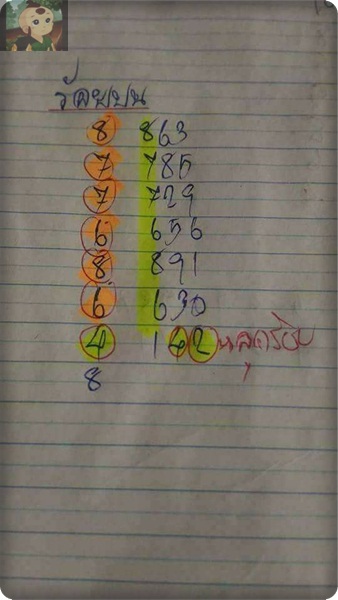 ร้อยบน
8 863
7 785
7 729
6 656
8 891
6 630
4 142 หลุดร้อย
8